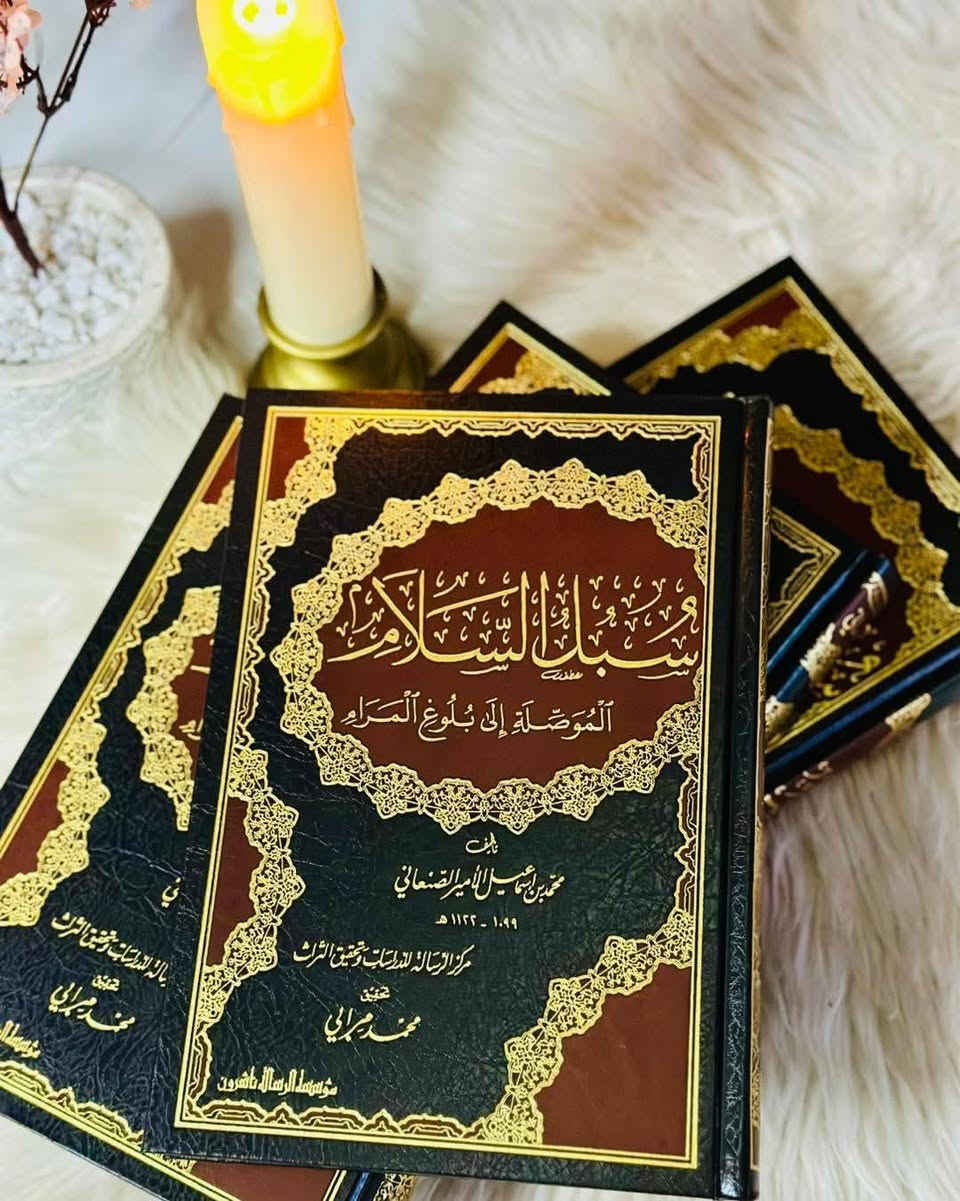 سُبُلُ السَّلَامِ
الْمُوَصِّلَةِ إِلَىٰ بُلُوغِ الْمَرَامِ
تأليف
محمد بن إسماعيل الأمير الصنعاني
١٠٩٩ - ١١٢٢ هـ
مركز الرسالة للدراسات وتحقيق التراث
تحقيق
محمد ميرابي
مؤسسة الرسالة ناشرون
ني
سالة للدراسات وتحقيق التراث
تحقيق
محمد ميرابي
مؤسسة ال